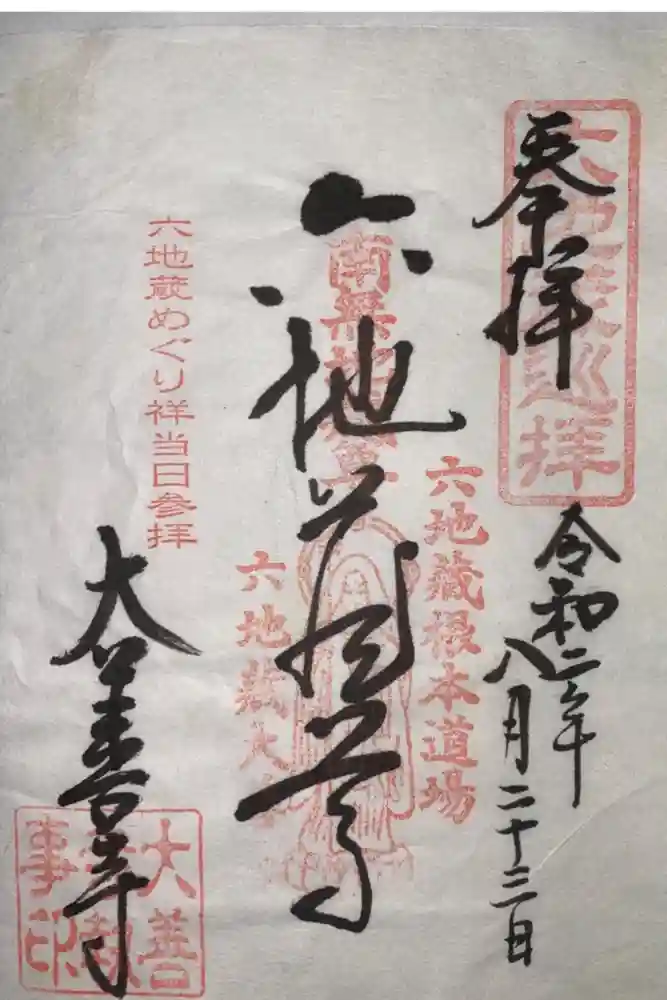 奉拝
六地蔵巡拝
令和二年
八月二十三日
六地藏根本道場
六地蔵尊
南無地蔵尊
六地藏大
六地蔵めぐり祥当日参拝
大善寺
大善
寺執
事印